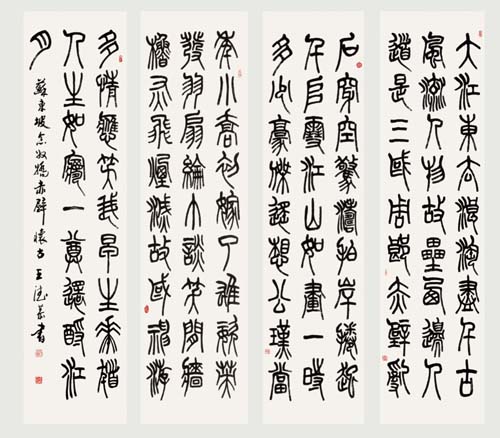 大江東去浪淘盡千古
風流人物故壘西邊人
道是三國周郎赤壁亂
石穿空驚濤拍岸捲起
千堆雪江山如畫一時
多少豪傑遙想公瑾當
年小喬初嫁了雄姿英
發羽扇綸巾談笑間檣
櫓灰飛煙滅故國神游
多情應笑我早生華髮
人生如夢一尊還酹江
月
蘇東坡念奴嬌赤壁懷古王書